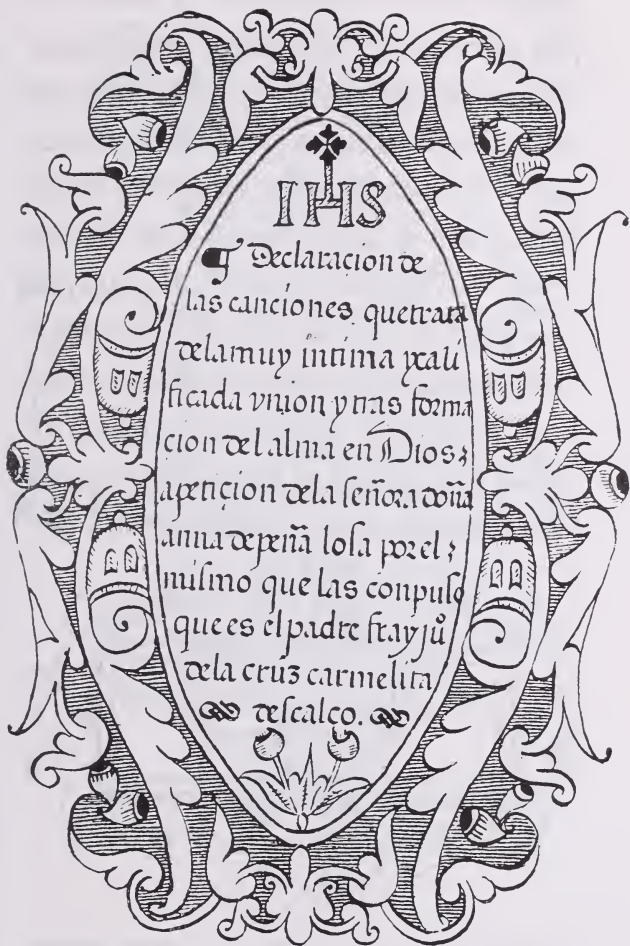 IHS
¶ Declaracion de
las canciones que trata
de la muy intima y cali
ficada vnion y tras forma
cion del alma en Dios;
a peticion de la señora doña
anna de peña losa por el;
mismo que las conpuso
que es el padre fray juº
de la cruz carmelita
descalço.